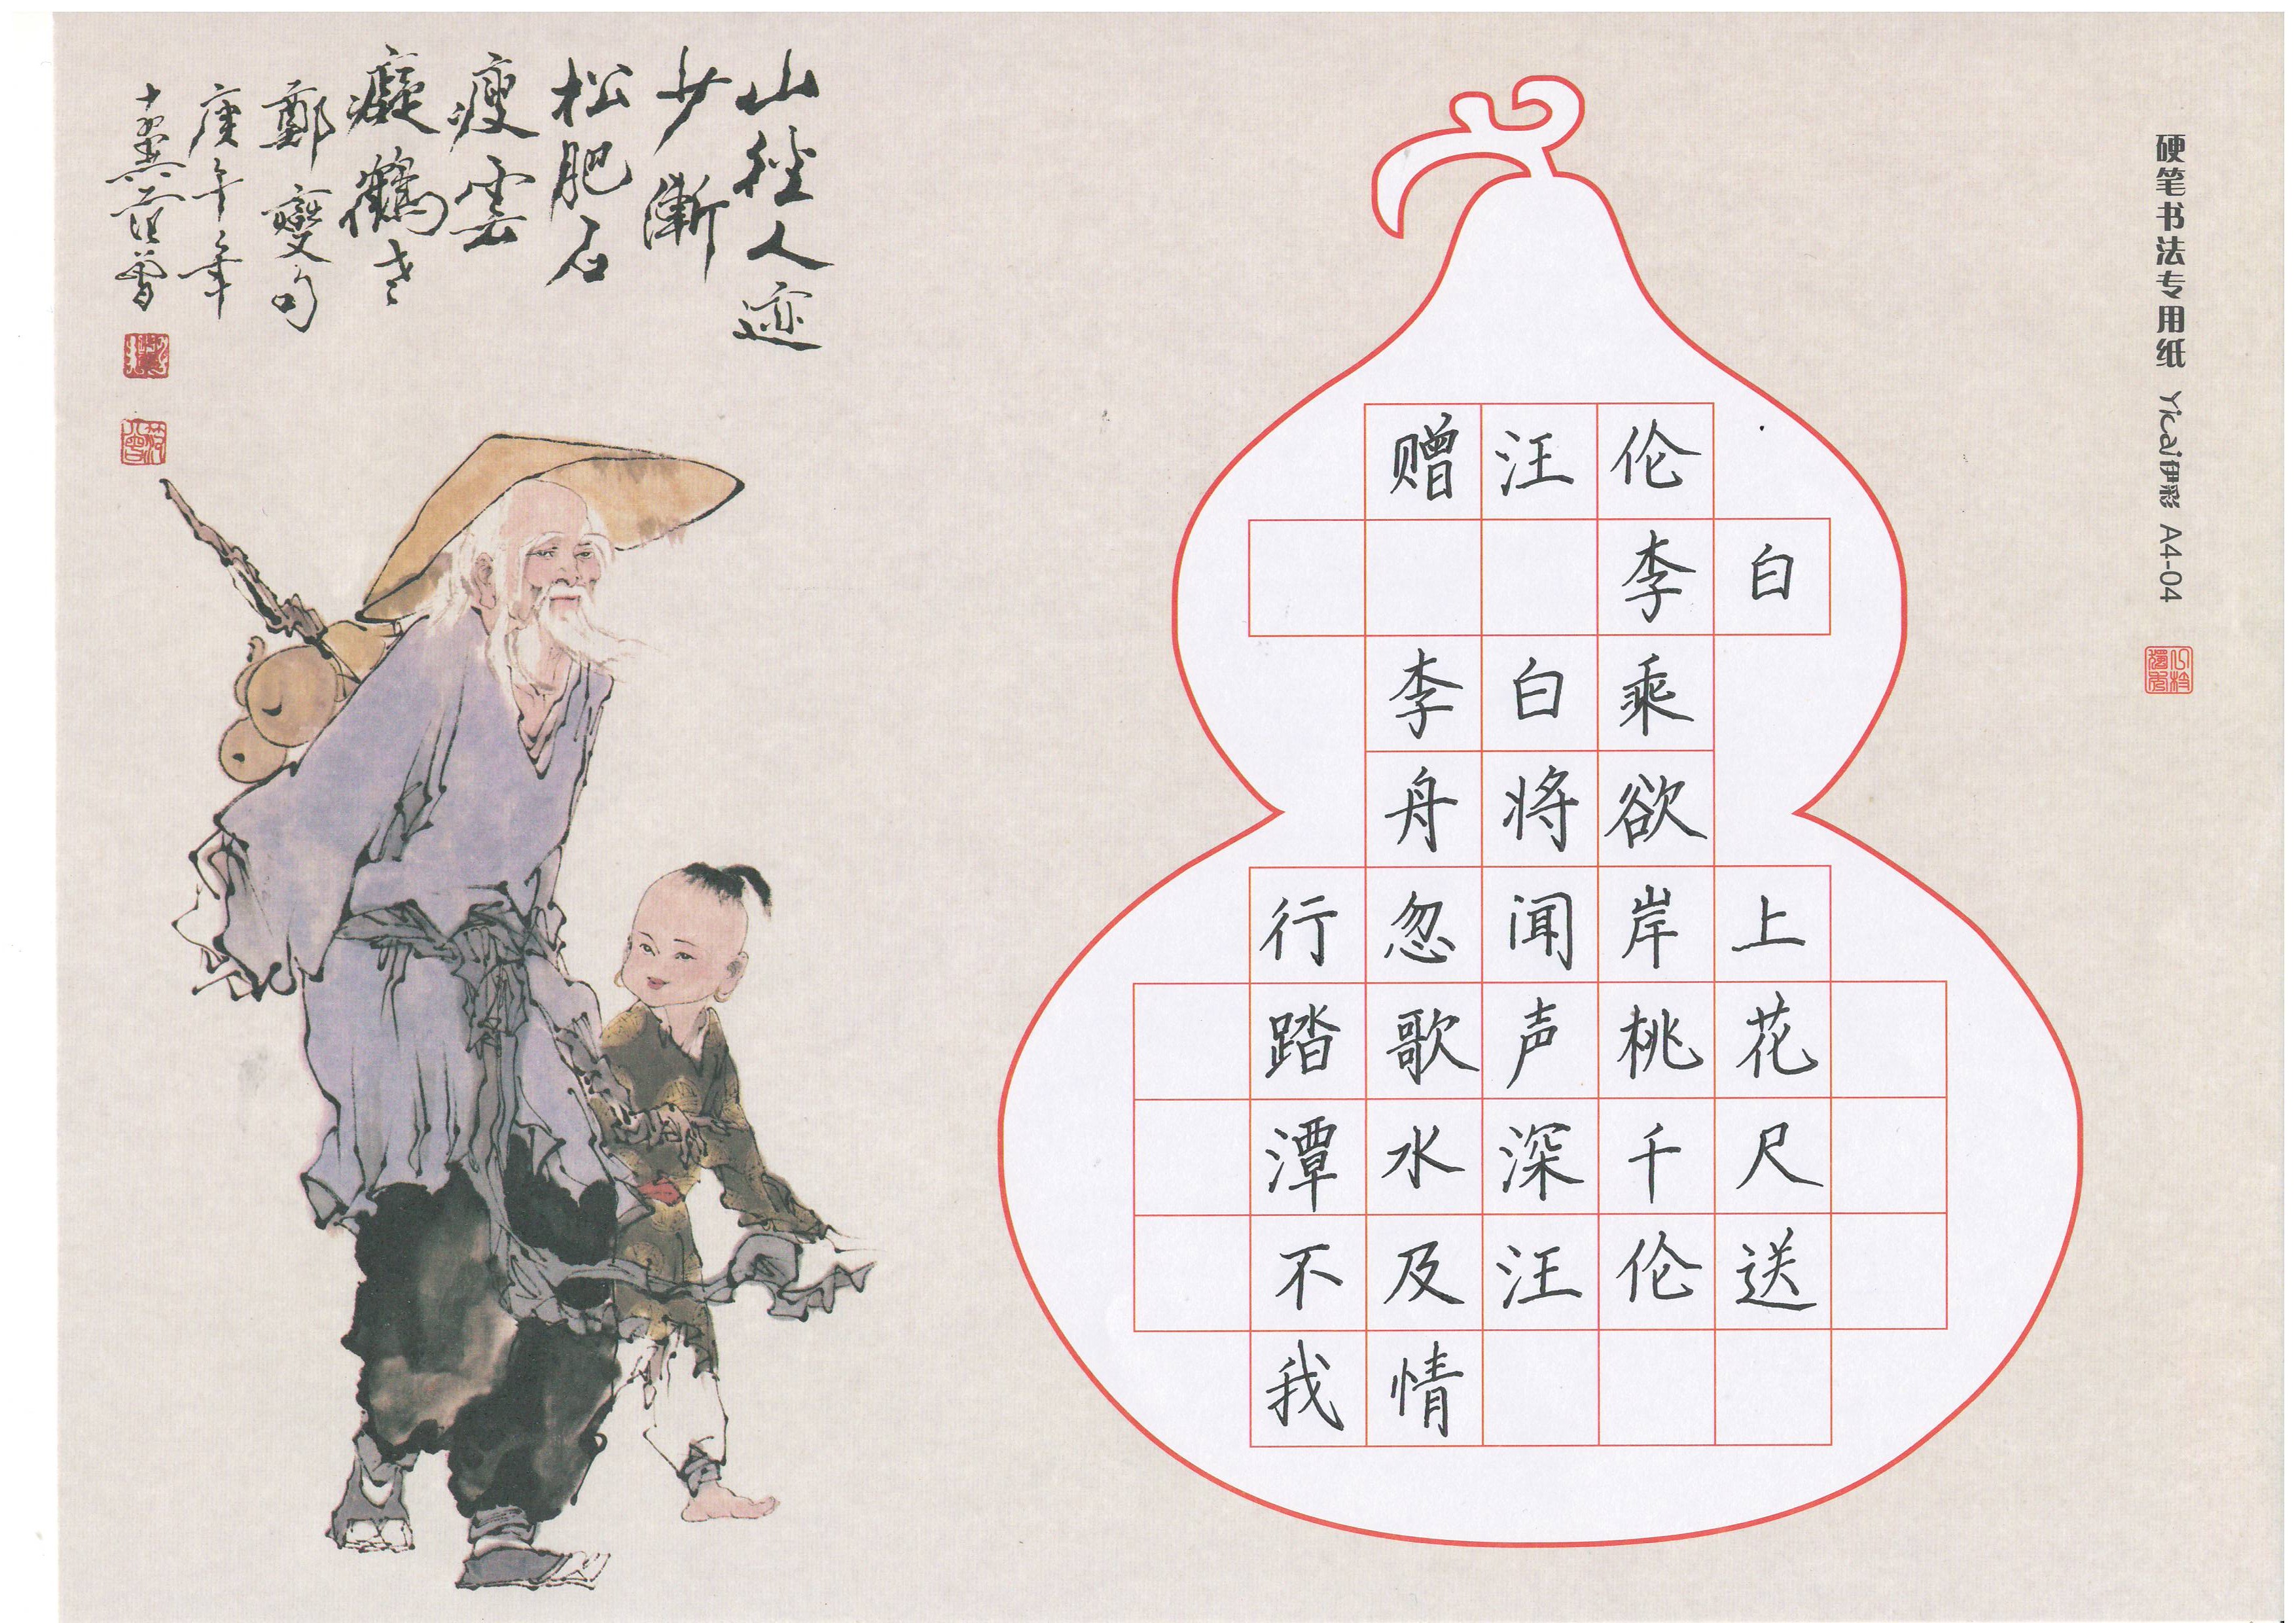 山徑人迹
少漸
松肥石
瘦雲
癡鶴老
鄭燮句
庚午年
十翼范曾
赠汪伦
李白
李白乘
舟将欲
行忽闻岸上
踏歌声桃花
潭水深千尺
不及汪伦送
我情
硬笔书法专用纸 Yicai伊彩 A4-04